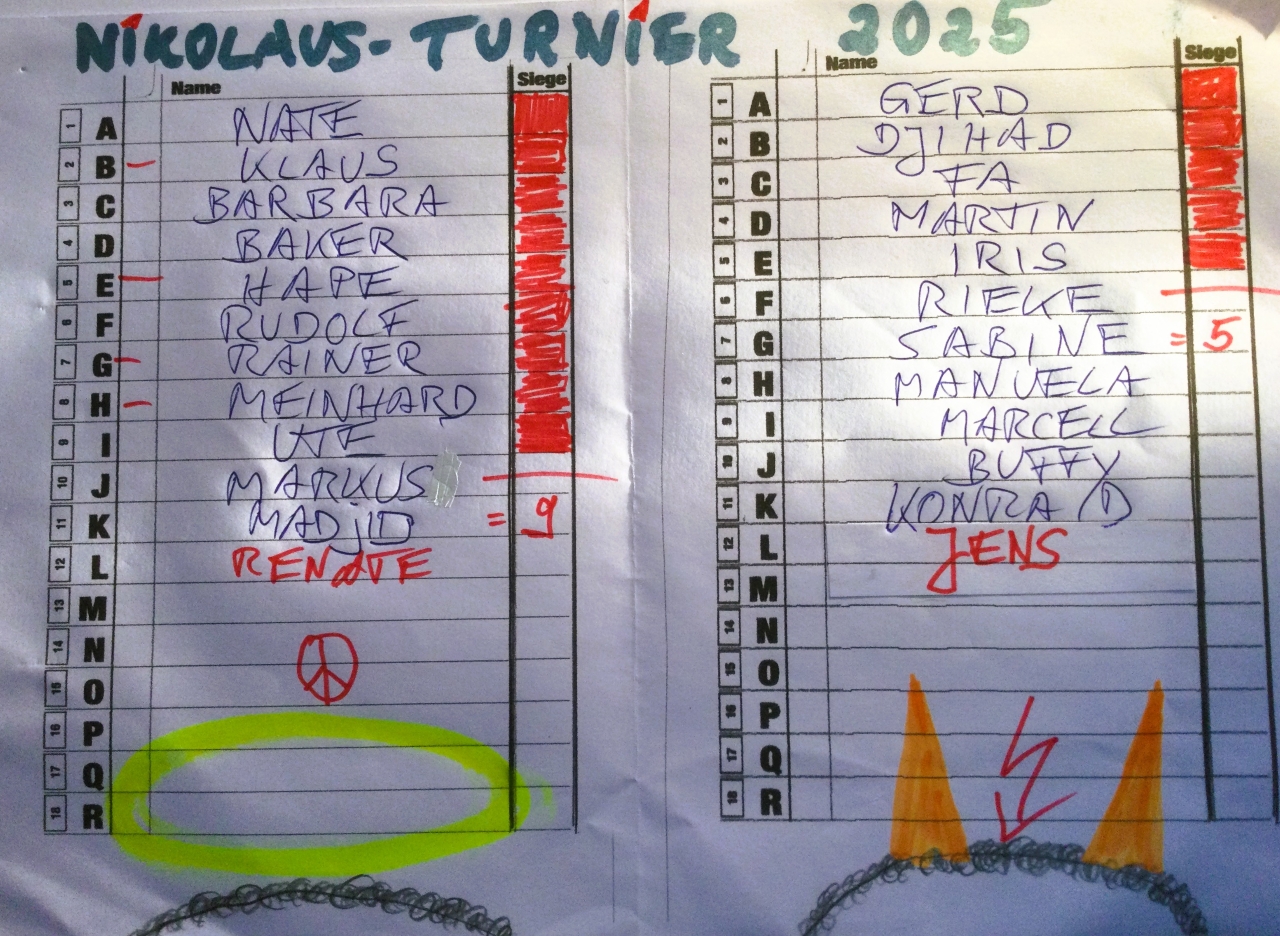 NIKOLAUS-TURNIER 2025
Name Siege
1 A NATE
2 B – KLAUS
3 C BARBARA
4 D BAKER
5 E – HAPE
6 F RUDOLF
7 G – RAINER
8 H – MEINHARD
9 I UTE
10 J MARKUS
11 K MADjID = 9
12 L RENATE
13 M
14 N
15 O
16 P
17 Q
18 R
Name Siege
1 A GERD
2 B DJIHAD
3 C FA
4 D MARTIN
5 E IRIS
6 F RIEKE
7 G SABINE = 5
8 H MANUELA
9 I MARCELL
10 J BUFFY
11 K KONRAD
12 L JENS
13 M
14 N
15 O
16 P
17 Q
18 R